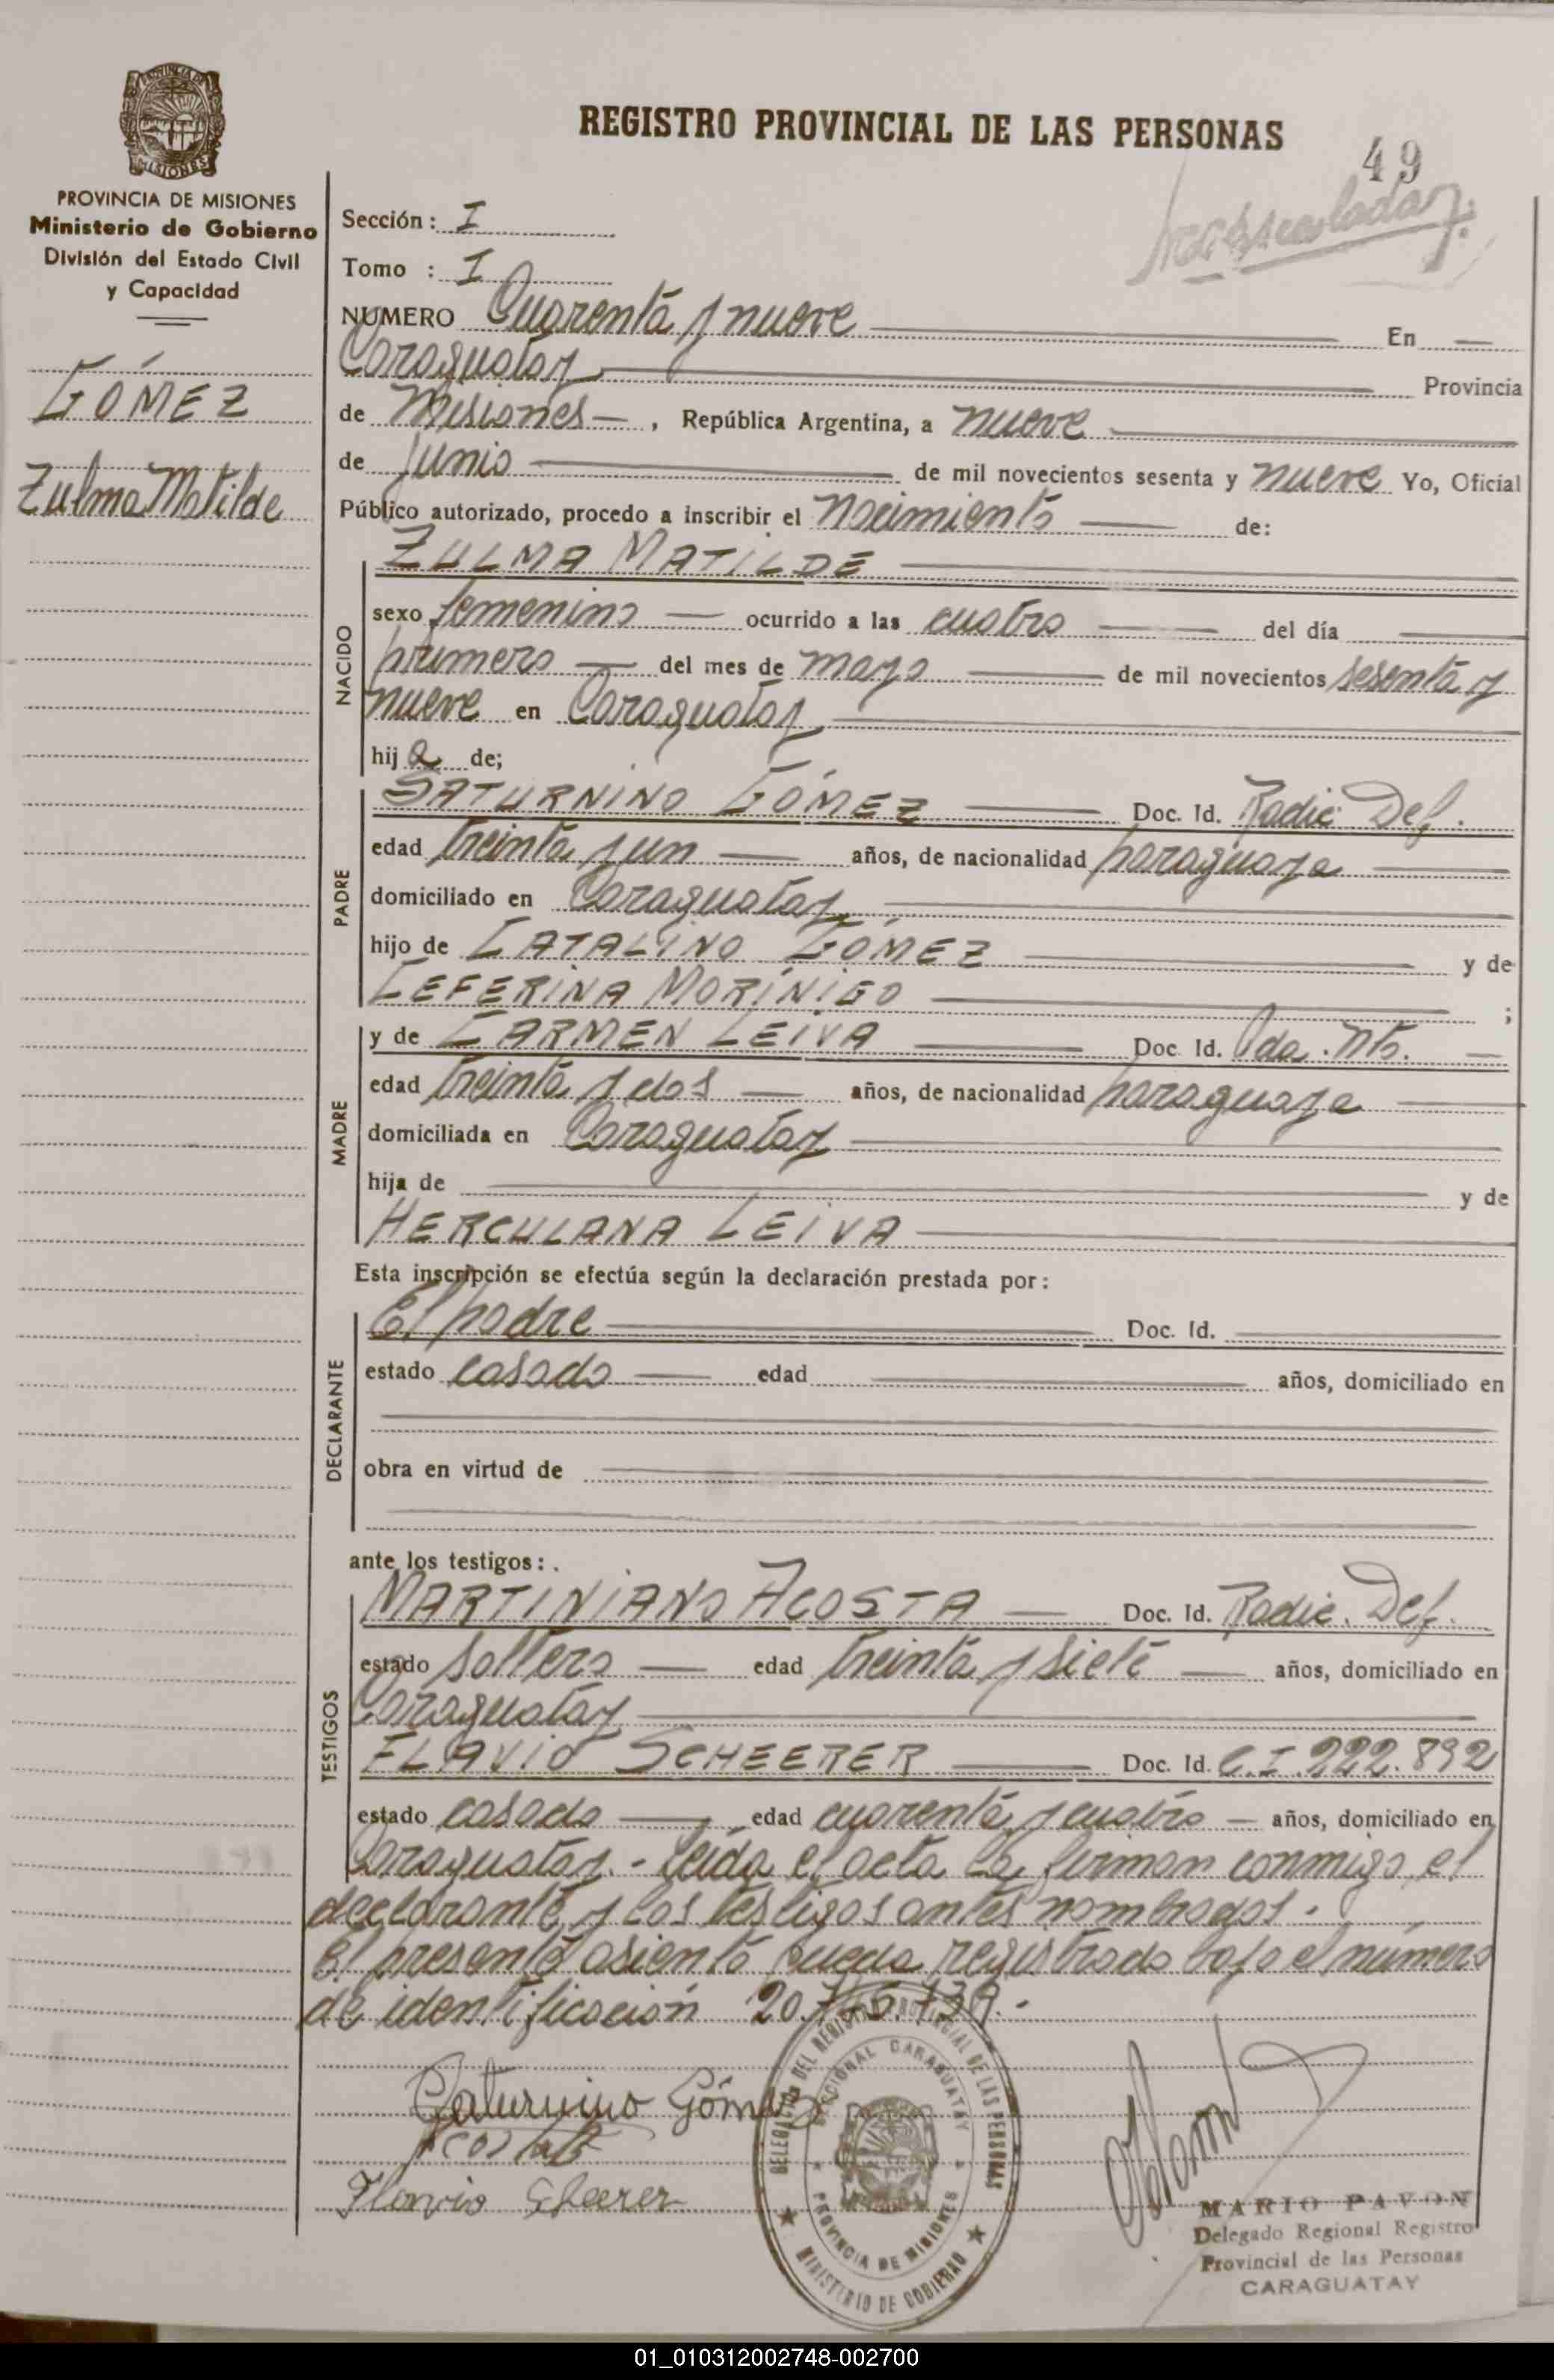 REGISTRO PROVINCIAL DE LAS PERSONAS
49
PROVINCIA DE MISIONES
Ministerio de Gobierno
División del Estado Civil
y Capacidad
GÓMEZ
Zulma Matilde
Sección: I
Tomo : I
NUMERO Cuarenta y nueve En
Caraguatay Provincia
de Misiones, República Argentina, a nueve
de junio de mil novecientos sesenta y nueve Yo, Oficial
Público autorizado, procedo a inscribir el nacimiento de:
NACIDO
ZULMA MATILDE
sexo femenino ocurrido a las cuatro del día
primero del mes de mayo de mil novecientos sesenta y
nueve en Caraguatay
hija de;
PADRE
SATURNINO GÓMEZ Doc. Id. Radic. Def.
edad treinta y un años, de nacionalidad paraguaya
domiciliado en Caraguatay
hijo de CATALINO GÓMEZ y de
CEFERINA MORÍNIGO ;
MADRE
y de CARMEN LEIVA Doc. Id.
edad treinta y dos años, de nacionalidad paraguaya
domiciliada en Caraguatay
hija de y de
HERCULANA LEIVA
Esta inscripción se efectúa según la declaración prestada por:
DECLARANTE
El padre Doc. Id.
estado casado edad años, domiciliado en
obra en virtud de
ante los testigos:.
TESTIGOS
MARTINIANO ACOSTA Doc. Id. Radic. Def.
estado soltero edad treinta y siete años, domiciliado en
Caraguatay
FLAVIO SCHEERER Doc. Id. C.I. 222.892
estado casado edad cuarenta y cuatro años, domiciliado en
Caraguatay.- Leída el acta la firman conmigo, el
declarante y los testigos antes nombrados.
El presente asiento queda registrado bajo el número
de identificación 20.
Saturnino Gómez
Acosta
Flavio Scheerer
DELEGACION DEL REGISTRO PROVINCIAL DE LAS PERSONAS
SECCIONAL CARAGUATAY
PROVINCIA DE MISIONES
MINISTERIO DE GOBIERNO
MARIO PAVON
Delegado Regional Registro
Provincial de las Personas
CARAGUATAY
01_010312002748-002700